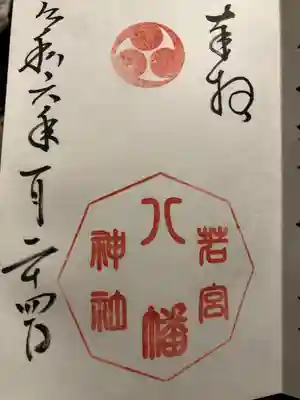 奉拝
若宮
八幡
神社
令和六年一月二十四日